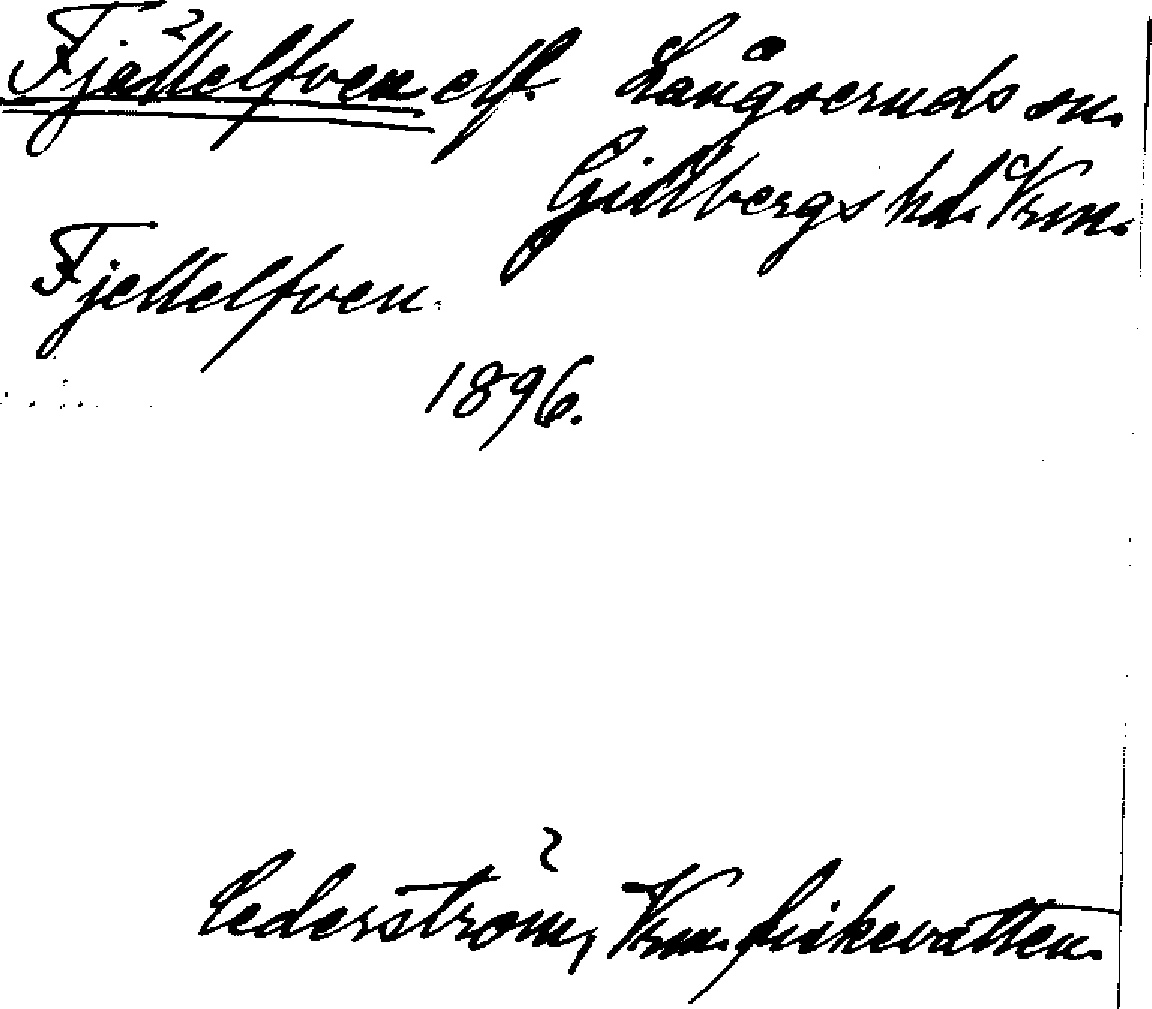 Fjättelfven elf. Långseruds sn.
Gillbergs hd. Vrm.
Fjettelfven.
1896.
Cederström, Vrm. fiskevatten.